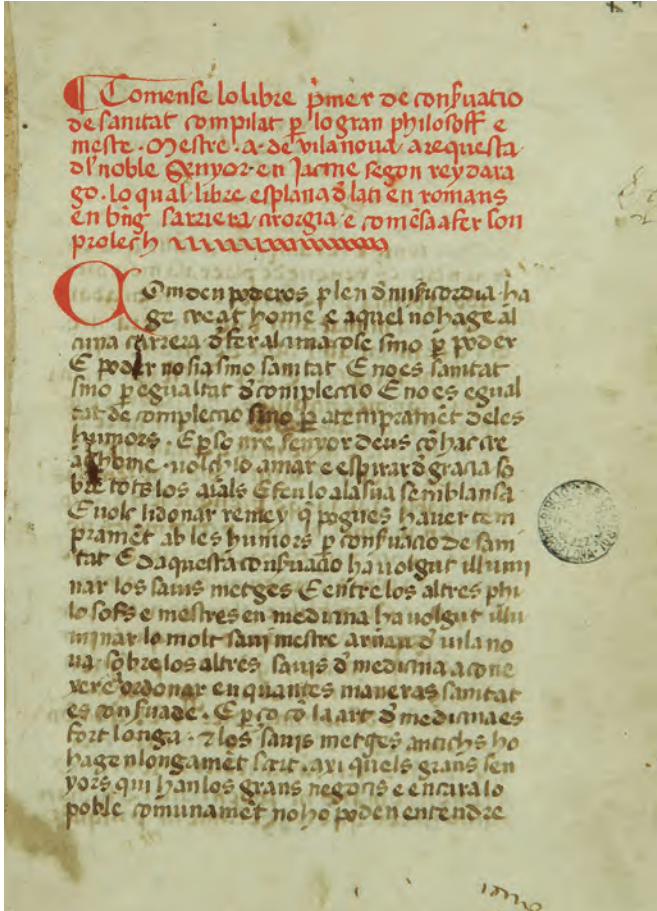 ¶ Comense lo libre p̄mer de conſ̄uatio
de sanitat compilat p̄ lo gran philosoff e
meſtre . Meſtre . A . de vilanoua a requeſta
dl noble Senyor en Jacme segon rey dara
go . lo qual libre esplana đ lati en romans
en bn̄g sarriera cirorgia e comēsa a fer son
prolech
Com deu poderos p̄ len đ miſicordia ha
ge creat home e aquel no hage al
cuna carrera đ fer al ama cose sino p̄ poder
E poder no sia sino sanitat E no es sanitat
sino p̄ egualtat đ complectio E no es egual
tat de complectio sino p̄ atempramēt deles
humors . E p̄ so nr̄e senyor deus cō hac cre
at home . uolch lo amar e espirar đ gracia so
bre tots los aīals E feu lo ala sua semblansa
E uolc li donar remey q̄ pogues hauer tem
pramēt ab les humors p̄ conſ̄uacio de sani
tat E daquesta conſ̄uacio ha uolgut illumi
nar los sauis metges E entre los altres phi
losofs e mestres en medicina ha uolgut illu
minar lo molt saui mestre arnau đ vilano
ua sobre los altres sauis đ medicina a cone
xer e ordonar en quantes maneras sanitat
es conſ̄uade . E p̄ ço cō la art đ medicina es
fort longa . ⁊ los sauis metges antichs ho
hagen longamēt scrit . axi quels grans sen
yors qui han los grans negocis e encara lo
poble comunamēt no ho poden entendre